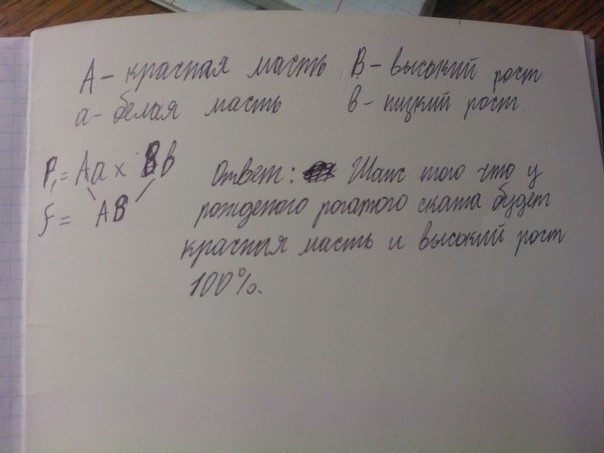 А - красная масть В - высокий рост
а - белая масть в - низкий рост.
P₁ = Аа х Вв
F = АВ
Ответ: Шанс того что у
рожденого рогатого ската будет
красная масть и высокий рост
100%.